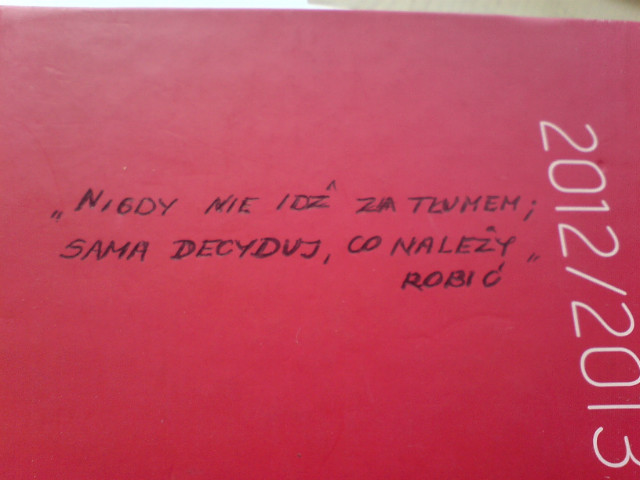 „NIGDY NIE IDŹ ZA TŁUMEM;
SAMA DECYDUJ, CO NALEŻY „
ROBIĆ
2012/2013